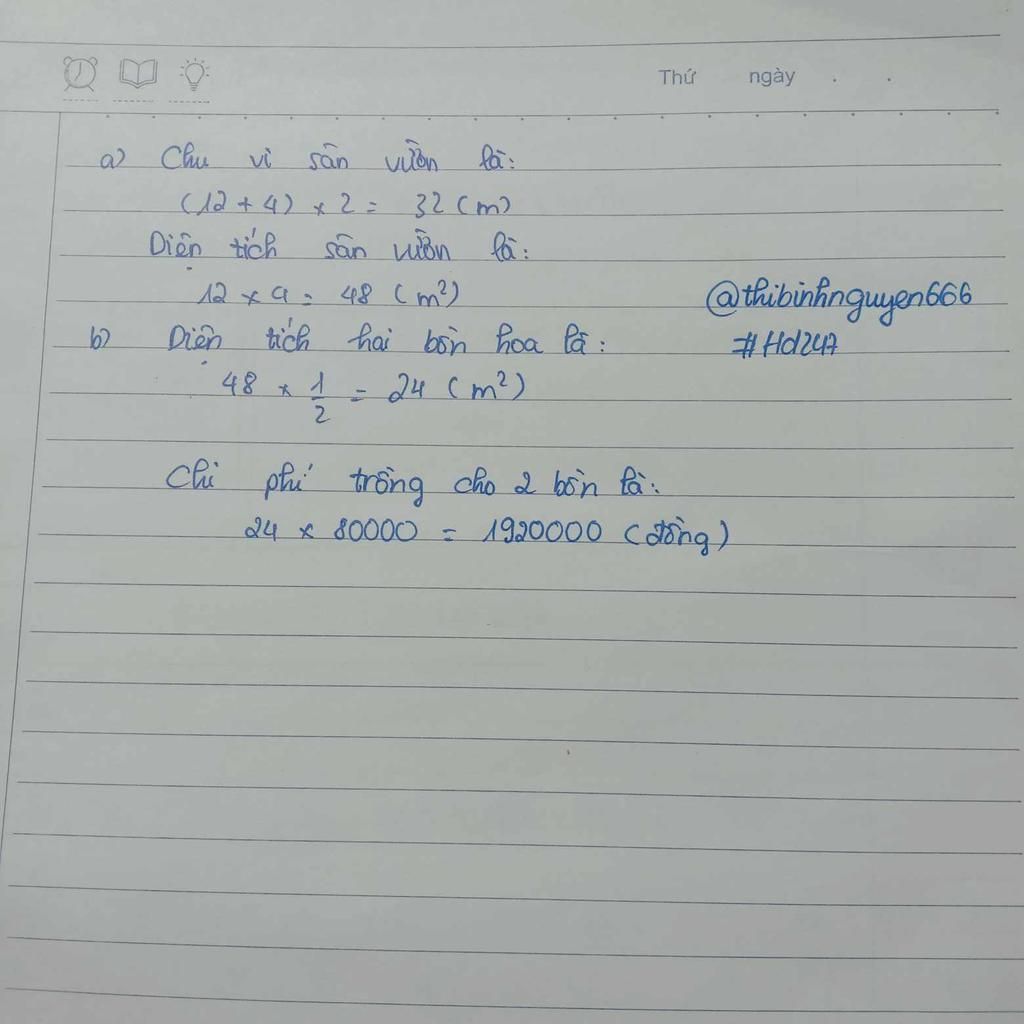 Thứ ngày . .
a) Chu vi sân vườn là:
(12 + 4) × 2 = 32 (m)
Diện tích sân vườn là:
12 × 4 = 48 (m²)
@thibinhnguyen666
b) Diện tích hai bồn hoa là:
#Hd247
48 × 1/2 = 24 (m²)
Chi phí trồng cho 2 bồn là:
24 × 80000 = 1920000 (đồng)